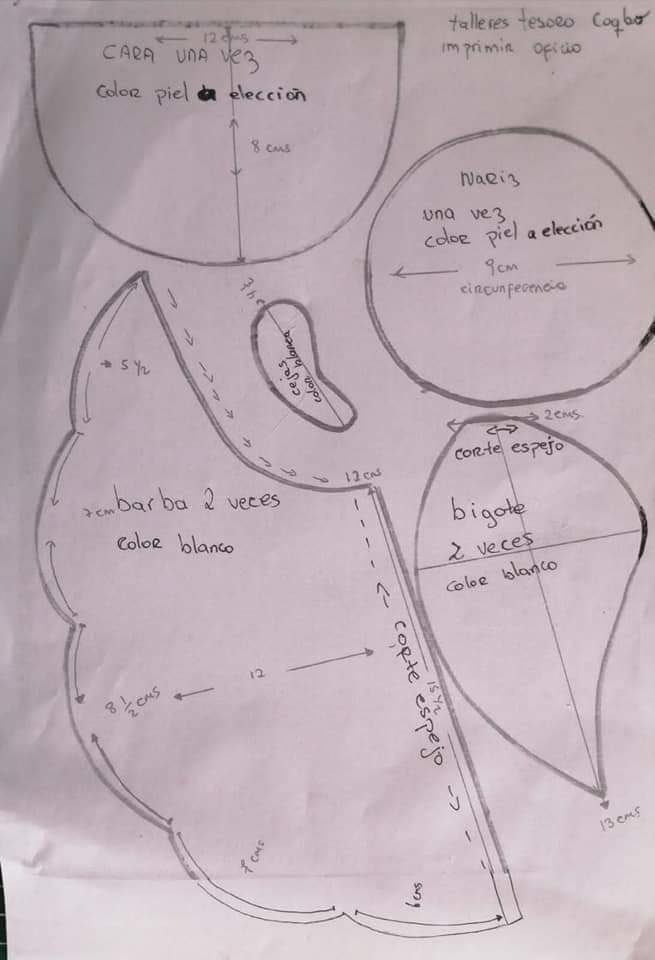 talleres tesoro Coqbo
imprimir oficio
12 cms
CARA UNA VEZ
color piel a elección
8 cms
Nariz
una vez
color piel a elección
9cm
circunferencia
cejas
color blanco
5 1/2
2 cms
corte espejo
bigote
2 veces
color blanco
13 cms
12 cms
7 cm
barba 2 veces
color blanco
12
8 1/2 cms
corte espejo
15 1/2
7 cms
6 cms